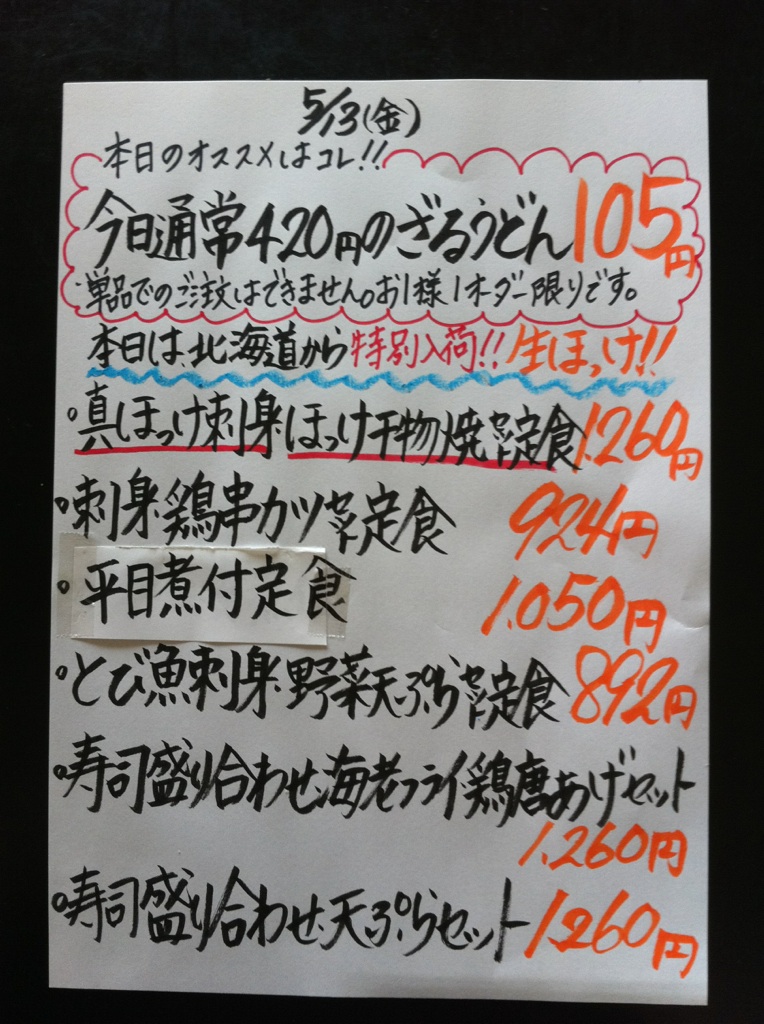 5/13(金)
本日のオススメはコレ!!
今日通常420円のざるうどん105円
単品でのご注文はできません。お1様1オーダー限りです。
本日は、北海道から特別入荷!!生ほっけ!!
・真ほっけ刺身ほっけ干物焼セット定食1.260円
・刺身鶏串カツセット定食 924円
・平目煮付定食 1.050円
・とび魚刺身野菜天ぷらセット定食892円
・寿司盛り合わせ、海老フライ鶏唐あげセット
1.260円
・寿司盛り合わせ、天ぷらセット1.260円